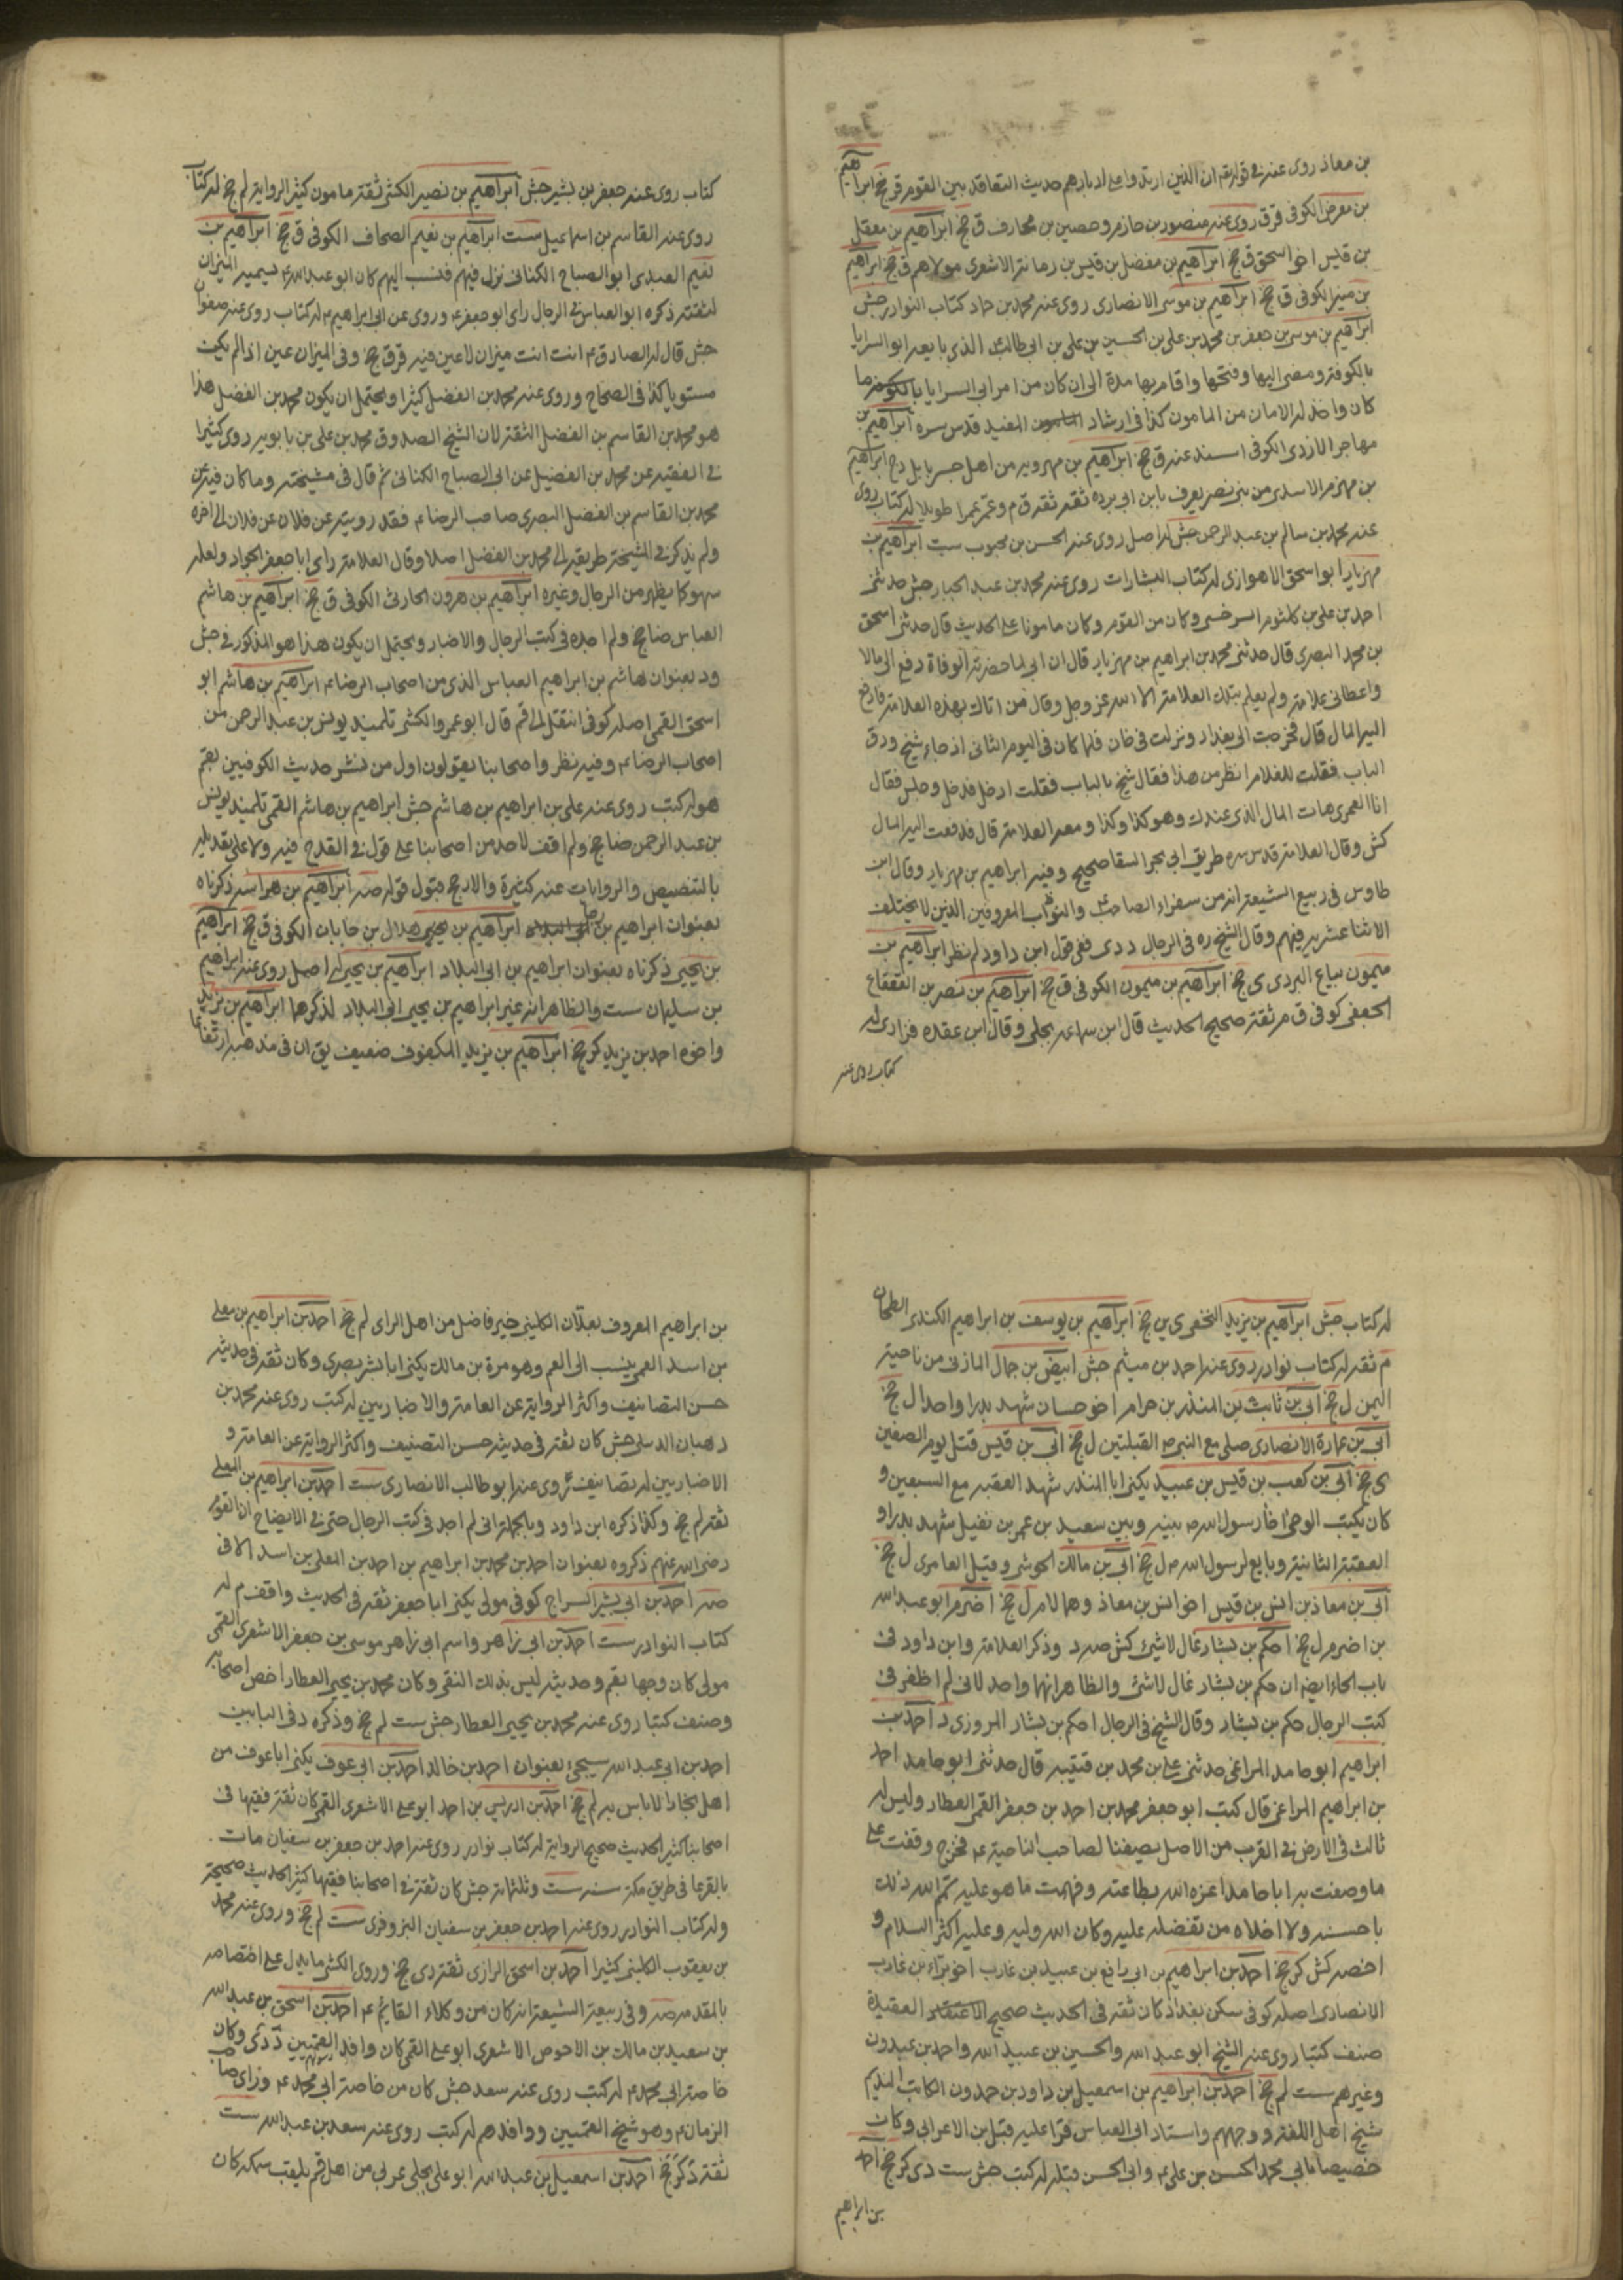 بن معاذ روى عنه في قوله تع ان الذين ارتدوا على ادبارهم حديث التعاقد بين القوم قر جخ ابراهيم
بن معرض الكوفى قر ق روى عنه منصور بن حازم وحصين بن مخارف ق جخ ابراهيم بن معقل
بن قيس اخو اسحق ق جخ ابراهيم بن مفضل بن قيس بن رمانة الاشعرى مولاهم ق جخ ابراهيم
بن منير الكوفى ق جخ ابراهيم بن موسى الانصارى روى عنه محمد بن حماد كتاب النوادر جش
ابراهيم بن موسى بن جعفر بن محمد بن على بن الحسين بن على بن ابى طالب الذى بايعه ابو السرايا
بالكوفة ومضى اليها وفتحها واقام بها مدة الى ان كان من امر ابى السرايا بالكوفة ما
كان واخذ له الامان من المامون كذا فى ارشاد المفيد قدس سره ابراهيم بن
مهاجر الازدى الكوفى اسند عنه ق جخ ابراهيم بن مهرويه من اهل جسر بابل دى جخ ابراهيم
بن مهزم الاسدى من بنى نصر يعرف بابن ابى برده ثقه ثقه ق م وعمر عمرا طويلا له كتاب روى
عنه محمد بن سالم بن عبد الرحمن جش له اصل روى عنه الحسن بن محبوب ست ابراهيم بن
مهزيار ابو اسحق الاهوازى له كتاب البشارات روى عنه محمد بن عبد الجبار جش حدثنى
احمد بن على بن كلثوم السرخسى وكان من القوم وكان مامونا على الحديث قال حدثنى اسحق
بن محمد البصرى قال حدثنى محمد بن ابراهيم بن مهزيار قال ان ابى لما حضرته الوفاة دفع الى مالا
واعطانى علامة ولم يعلم بتلك العلامة الا الله عز وجل وقال فمن اتاك بهذه العلامة فادفع
اليه المال قال فخرجت الى بغداد ونزلت فى خان فلما كان فى اليوم الثانى اذ جاء شيخ ودق
الباب فقلت للغلام انظر من هذا فقال شيخ بالباب فقلت ادخل فدخل وجلس فقال
انا العمرى هات المال الذى عندك وهو كذا وكذا ومعه العلامة قال فدفعت اليه المال
كش وقال العلامة قدس سره طريق ابى بحر السقا صحيح وفيه ابراهيم بن مهزيار وقال ابن
طاوس فى ربيع الشيعة انه من سفراء الصاحب والنواب المعروفين الذين لا يختلف
الاثنا عشريه فيهم وقال الشيخ ره فى الرجال د دى ففى قول ابن داود لم نظر ابراهيم بن
ميمون بياع البردى ى جخ ابراهيم بن ميمون الكوفى ق جخ ابراهيم بن نصر بن القعقاع
الجعفى كوفى ق م ثقة صحيح الحديث قال ابن سماعه بجلى وقال ابن عقده فزارى له
كتاب روى عنه
كتاب روى عنه جعفر بن بشير جش ابراهيم بن نصير الكشى ثقة مامون كثير الرواية لم جخ له كتاب
روى عنه القاسم بن اسماعيل ست ابراهيم بن نعيم الصحاف الكوفى ق جخ ابراهيم بن
نعيم العبدى ابو الصباح الكنانى نزل فيهم فنسب اليهم كان ابو عبد الله ع يسميه الميزان
لثقته ذكره ابو العباس فى الرجال راى ابو جعفر ع وروى عن ابى ابراهيم ع له كتاب روى عنه صفوان
جش قال له الصادق ع انت ميزان لا عين فيه قر ق جخ وفى الميزان عين اذا لم يكن
مستويا كذا فى الصحاح وروى عنه محمد بن الفضل كثيرا ويحتمل ان يكون محمد بن الفضل هذا
هو محمد بن القاسم بن الفضل الثقة لان الشيخ الصدوق محمد بن على بن بابويه روى كثيرا
فى الفقيه عن محمد بن الفضيل عن ابى الصباح الكنانى ثم قال فى مشيخته وما كان فيه عن
محمد بن القاسم بن الفضل البصرى صاحب الرضا ع فقد رويته عن فلان عن فلان الى اخره
ولم يذكر فى المشيخة طريقه الى محمد بن الفضل اصلا وقال العلامة راى ابا جعفر الجواد ولعله
سهو كما يظهر من الرجال وغيره ابراهيم بن هرون الحارثى الكوفى ق جخ ابراهيم بن هاشم
العباس ضا جخ ولم اجده فى كتب الرجال والاخبار ويحتمل ان يكون هذا هو المذكور فى جش
ود بعنوان هاشم بن ابراهيم العباسى الذى من اصحاب الرضا ع ابراهيم بن هاشم ابو
اسحق القمى اصله كوفى انتقل الى قم قال ابو عمرو الكشى تلميذ يونس بن عبد الرحمن من
اصحاب الرضا ع وفيه نظر واصحابنا يقولون اول من نشر حديث الكوفيين بقم
هو له كتب روى عنه على بن ابراهيم بن هاشم جش ابراهيم بن هاشم القمى تلميذ يونس
بن عبد الرحمن ضا جخ ولم اقف لاحد من اصحابنا على قول فى القدح فيه ولا على تعديله
بالتنصيص والروايات عنه كثيرة والارجح قبول قوله صه ابراهيم بن هراسه ذكرناه
بعنوان ابراهيم بن رجا ابراهيم بن هلال بن جابان الكوفى ق جخ ابراهيم
بن يحيى ذكرناه بعنوان ابراهيم بن ابى البلاد ابراهيم بن يحيى له اصل روى عنه ابراهيم
بن سليمان ست والظاهر انه غير ابراهيم بن يحيى ابى البلاد لذكرهما ابراهيم بن يزيد
واخوه احمد بن يزيد كر جخ ابراهيم بن يزيد المكفوف ضعيف يق ان فى مذهبه ارتفاعا
له كتاب جش ابراهيم بن يزيد النخعى ى ين جخ ابراهيم بن يوسف بن ابراهيم الكندى الطحان
م ثقه له كتاب نوادر روى عنه احمد بن ميثم جش ابيض بن جمال المازنى من ناحية
اليمن ل جخ ابى بن ثابت بن المنذر بن حرام اخو حسان شهد بدرا واحدا ل جخ
ابى بن عمارة الانصارى صلى مع النبى ص القبلتين ل جخ ابى بن قيس قتل يوم الصفين
ى جخ ابى بن كعب بن قيس بن عبيد يكنى ابا المنذر شهد العقبه مع السبعين و
كان يكتب الوحى اخا رسول الله ص بينه وبين سعيد بن عمر بن نفيل شهد بدرا و
العقبة الثانية وبايع لرسول الله ص ل جخ ابى بن مالك الحوشى وقيل العامرى ل جخ
ابى بن معاذ بن انس بن قيس اخو انس بن معاذ وهما لام ل جخ اخرم ابو عبد الله
بن اخرم ل جخ احكم بن بشار غال لا شئ كش صه د وذكر العلامة وابن داود فى
باب الحاء ايضا ان حكم بن بشار غال لا شئ والظاهر انهما واحد لانى لم اظفر فى
كتب الرجال حكم بن بشار وقال الشيخ فى الرجال احكم بن بشار المروزى د احمد بن
ابراهيم ابو حامد المراغى حدثنى على بن محمد بن قتيبه قال حدثنى ابو حامد احمد
بن ابراهيم المراغى قال كتب ابو جعفر محمد بن احمد بن جعفر القمى العطار وليس له
ثالث فى الارض فى القرب من الاصل يصيفنا لصاحب الناحية ع فخرج وقفت على
ما وصفت به ابا حامد اعزه الله بطاعته وفهمت ما هو عليه تمم الله ذلك
باحسنه ولا اخلاه من تفضله عليه وكان الله وليه وعليه اكثر السلام و
اخصه كش كر جخ احمد بن ابراهيم بن ابى رافع بن عبيد بن عازب اخو براء بن عازب
الانصارى اصله كوفى سكن بغداد كان ثقه فى الحديث صحيح العقيدة
صنف كتبا روى عنه الشيخ ابو عبد الله والحسين بن عبيد الله واحمد بن عبدون
وغيرهم ست لم جخ احمد بن ابراهيم بن اسمعيل بن داود بن حمدون الكاتب النديم
شيخ اهل اللغة ووجههم واستاد ابى العباس قرا عليه قبل بن الاعرابى وكان
خصيصا بابى محمد الحسن بن على ع وابى الحسن قبله له كتب جش ست دى كر جخ احمد
بن ابراهيم
بن ابراهيم المعروف بعلان الكلينى خير فاضل من اهل الراى لم جخ احمد بن ابراهيم بن معلى
بن اسد العمى ينسب الى العم وهو مرة بن مالك يكنى ابا بشر بصرى وكان ثقه فى حديثه
حسن التصانيف واكثر الرواية عن العامة والاخباريين له كتب روى عنه محمد بن
وهبان الدبيلى جش كان ثقة فى حديثه حسن التصنيف واكثر الرواية عن العامة و
الاخباريين له تصانيف روى عنه ابو طالب الانصارى ست احمد بن ابراهيم بن المعلى
ثقه لم جخ وكذا ذكره ابن داود وبالجملة انى لم اجد فى كتب الرجال حتى فى الايضاح ان القوم
رضى الله عنهم ذكروه بعنوان احمد بن محمد بن ابراهيم بن احمد بن المعلى بن اسد الا فى
صه احمد بن ابى بشر السراج كوفى مولى يكنى ابا جعفر ثقه فى الحديث واقف م له
كتاب النوادر ست احمد بن ابى زاهر واسم ابى زاهر موسى بن جعفر الاشعرى القمى
مولى كان وجها بقم وحديثه ليس بذلك النقى وكان محمد بن يحيى العطار اخص اصحابه
وصنف كتبا روى عنه محمد بن يحيى العطار جش ست لم جخ وذكره د فى البابين
احمد بن ابى عبد الله سيجئ بعنوان احمد بن خالد احمد بن ابى عوف يكنى ابا عوف من
اهل بخارا لا باس به لم جخ احمد بن ادريس بن احمد ابو على الاشعرى القمى كان ثقة فقيها فى
اصحابنا كثير الحديث صحيح الرواية له كتاب نوادر روى عنه احمد بن جعفر بن سفيان مات
بالقرعا فى طريق مكة سنه ست وثلثمائة جش كان ثقة فى اصحابنا فقيها كثير الحديث صحيحه
وله كتاب النوادر روى عنه احمد بن جعفر بن سفيان البزوفرى ست لم جخ وروى عنه محمد
بن يعقوب الكلينى كثيرا احمد بن اسحق الرازى ثقة دى جخ وروى الكشى ما يدل على اختصاصه
بالمقدمه صه وفى ربيعة الشيعة انه كان من وكلاء القايم ع احمد بن اسحق بن عبد الله
بن سعيد بن مالك بن الاحوص الاشعرى ابو على القمى كان وافد القميين د دى وكان
خاصة ابى محمد ع له كتب روى عنه سعد جش كان من خاصة ابى محمد ع وراى صاحب
الزمان ع وهو شيخ القميين ووافدهم له كتب روى عنه سعد بن عبد الله ست
ثقة د كر جخ احمد بن اسمعيل بن عبد الله ابو على بجلى عربى من اهل قم يلقب سمكه كان